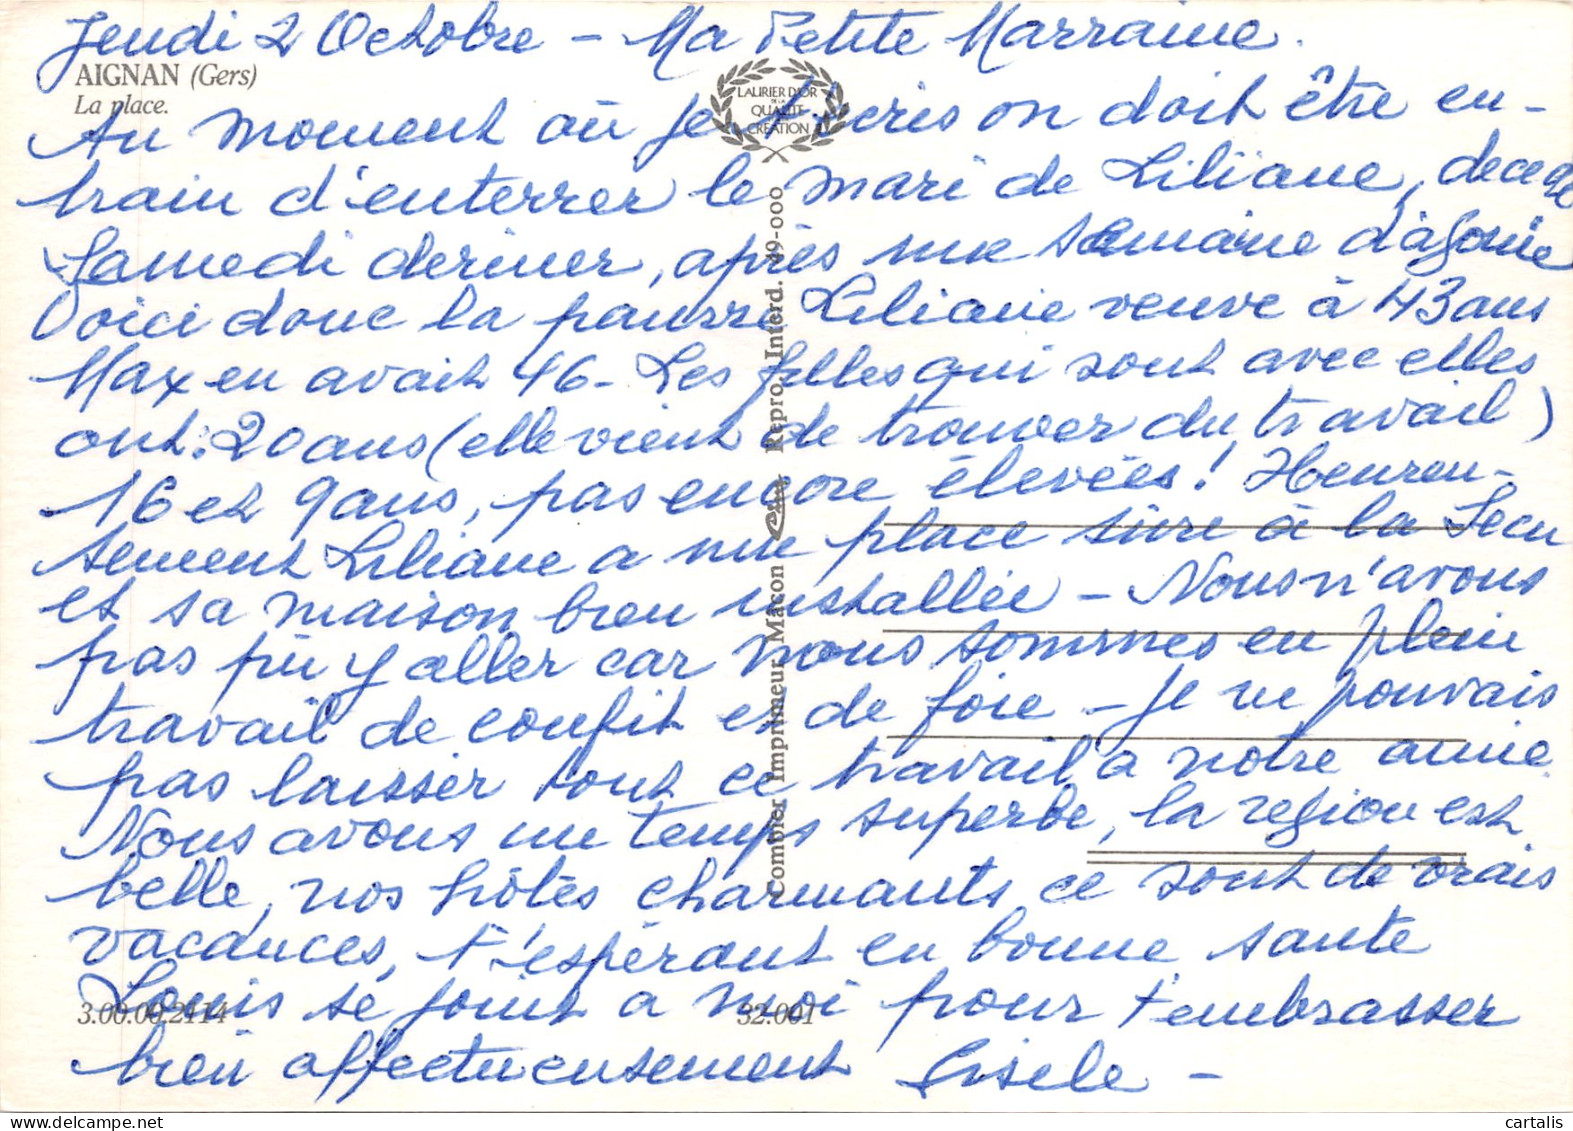 Jeudi 2 Octobre - Ma Petite Marraine.
AIGNAN (Gers)
La place.
LAURIER D'OR
DE LA
QUALITE
CREATION
Au moment où je t'écris on doit être en-
train d'enterrer le mari de Liliane, decede
Samedi dernier, après une semaine d'agonie
Voici donc la pauvre Liliane veuve à 43 ans
Max en avait 46 - Les filles qui sont avec elles
ont: 20 ans (elle vient de trouver du travail)
16 et 9 ans, pas encore élevées! Heureu-
sement Liliane a une place sûre à la Secu
et sa maison bien installée - Nous n'avons
pas pu y aller car nous sommes en plein
travail de confit et de foie - Je ne pouvais
pas laisser tout ce travail a notre amie
Nous avons un temps superbe, la region est
belle, nos hôtes charmants ce sont de vrais
vacances, t'espérant en bonne sante
Louis se joint a moi pour t'embrasser
bien affectueusement Gisele -
3.00.00.2114
32.001
Combier Imprimeur Mâcon Repro. Interd. 49-000
cartalis